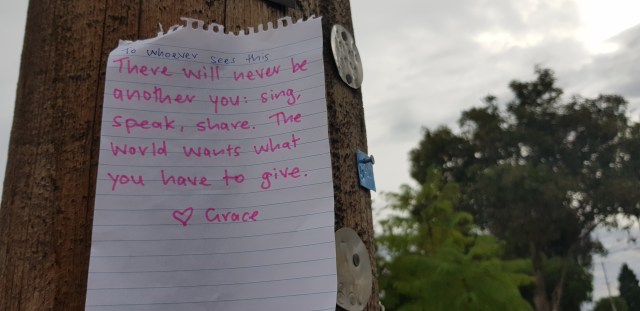 To whoever sees this
There will never be
another you: sing,
speak, share. The
world wants what
you have to give.
♡ Grace